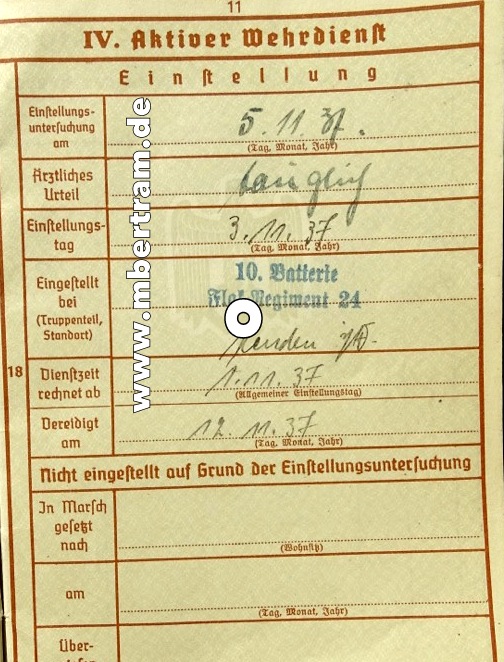 11
IV. Aktiver Wehrdienst
Einstellung
Einstellungs-
untersuchung
am
5. 11. 37.
(Tag, Monat, Jahr)
Ärztliches
Urteil
tauglich
Einstellungs-
tag
3. 11. 37
(Tag, Monat, Jahr)
Eingestellt
bei
(Truppenteil,
Standort)
10. Batterie
Flak-Regiment 24
18
Dienstzeit
rechnet ab
1. 11. 37
(Allgemeiner Einstellungstag)
Vereidigt
am
12. 11. 37
(Tag, Monat, Jahr)
Nicht eingestellt auf Grund der Einstellungsuntersuchung
In Marsch
gesetzt
nach
(Wohnsitz)
am
(Tag, Monat, Jahr)
Über-
www.mbertram.de